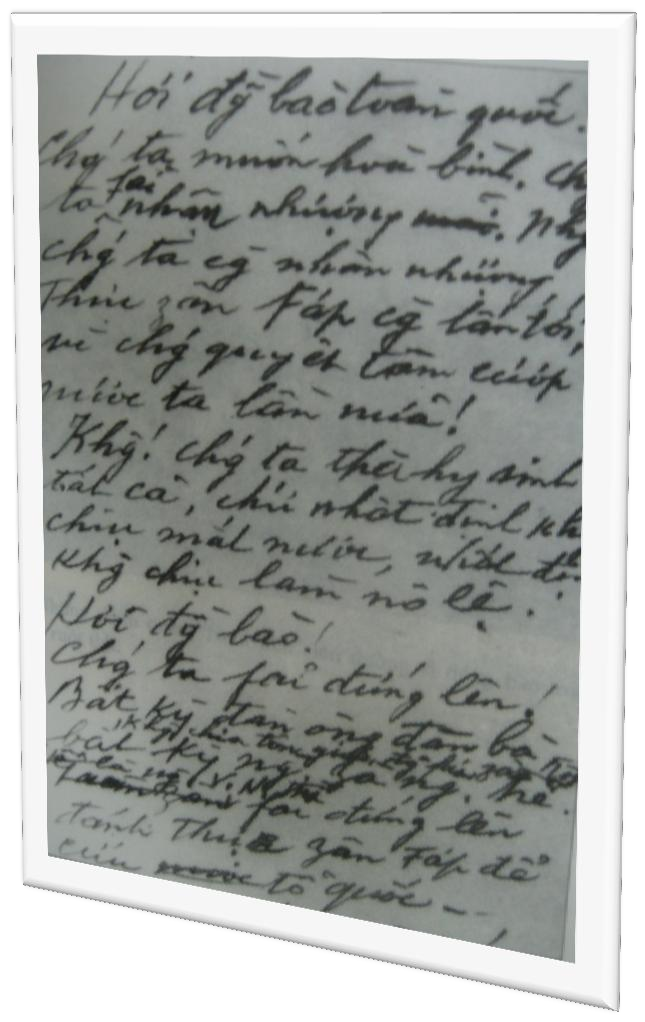 Hỡi đg̃ bào toàn quốc.
Chg' ta muốn hoà bình. Ch
ta fải nhân nhượng. Nhg
chg' ta cg̃ nhân nhượng,
Thực zân Fáp cg̃ lấn tới,
vì chg' quyết tâm cướp
nước ta lần nữa!
Khg! chg' ta thà hy sinh
tất cả, chứ nhất định kh
chịu mất nước, nhất đị
khg chịu làm nô lệ.
Hỡi đg̃ bào!
Chg' ta fải đứng lên!
Bất kỳ đàn ông đàn bà
bất kỳ ng già ng. trẻ.
khg chia tôn giáo
là ng V. N thì
fải đứng lên
đánh Thực zân Fáp để
cứu tổ quốc --